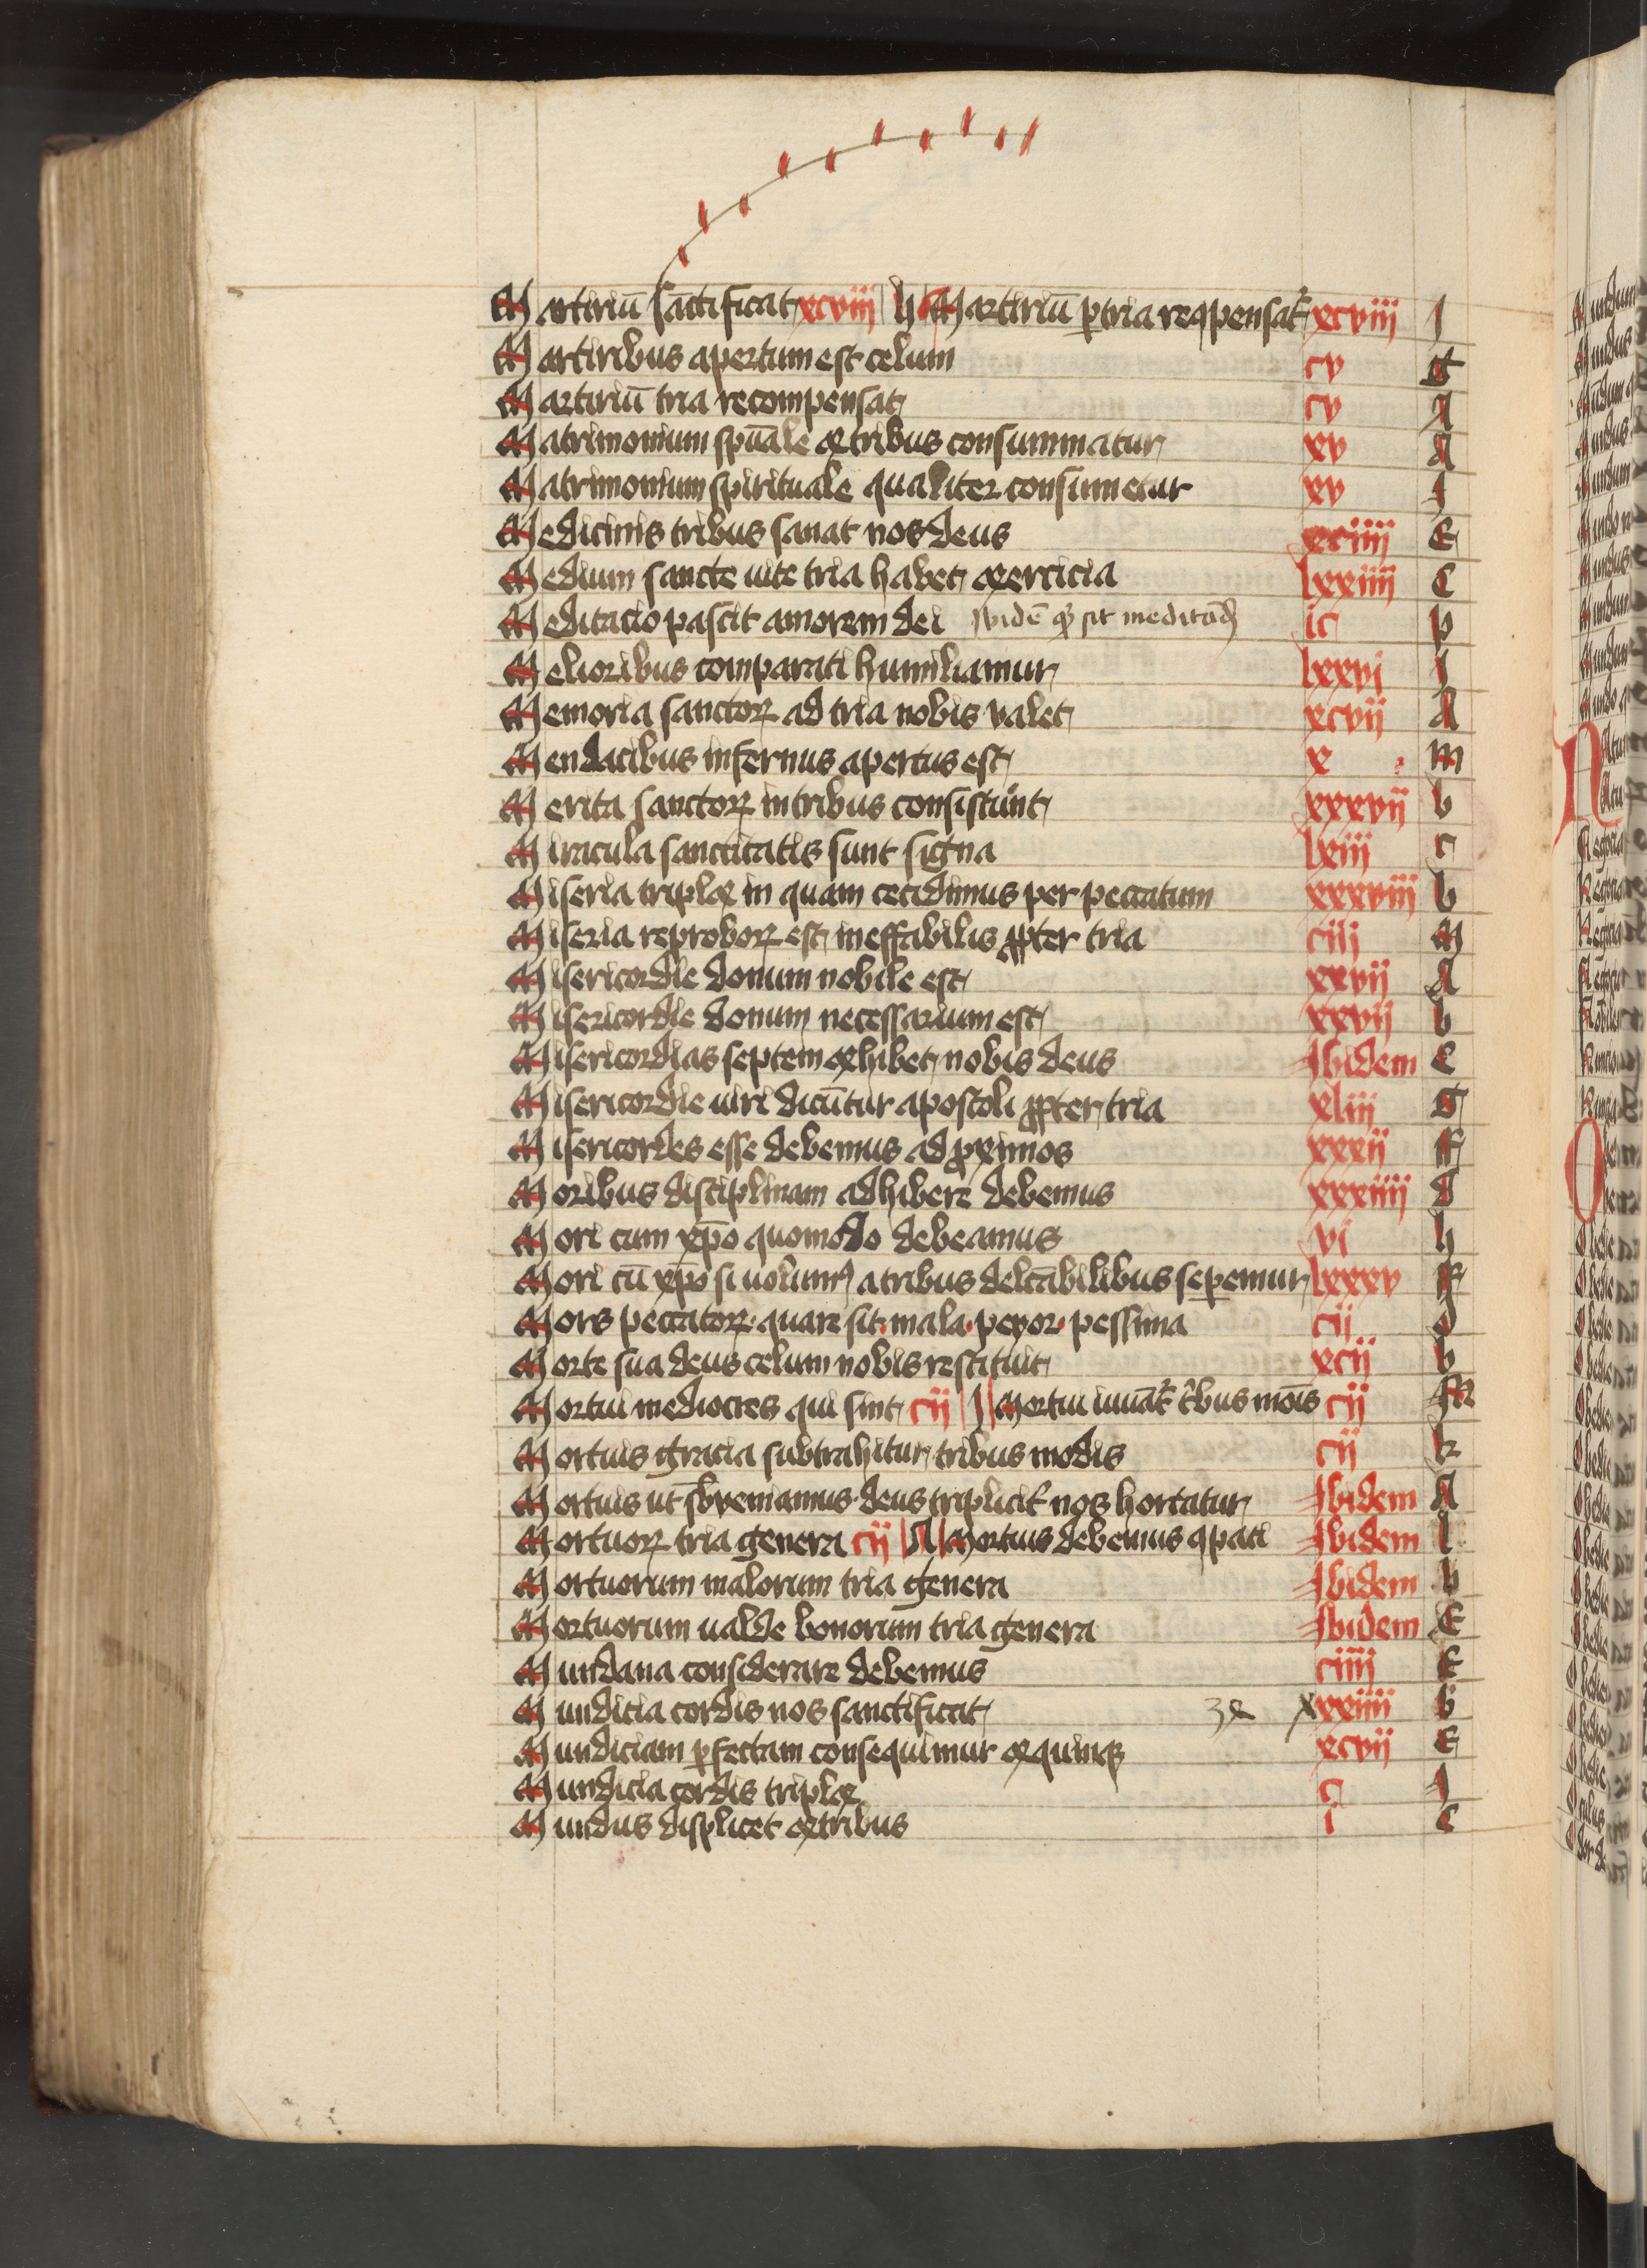 Martiriū sāctificat xcviii h Martiriū ꝑ tria reꝯpensat᷑ xcviii I
Martiribus apertum est celum cv G
Martiriū tria recompensat cv A
Matrimonium spūale ex tribus consummatur xv A
Matrimonium spirituale qualiter consumetur xv I
Medicinis tribus sanat nos deus xciiii E
Medium sancte uite tria habet exercicia lxxiiii C
Meditacio pascit amorem dei Ibidē ꝙ sit meditād ic p
Melioribus comparati humiliamur lxxvi I
Memoria sanctoꝝ ad tria nobis valet xcvii A
Mendacibus infernus apertus est x m
Merita sanctoꝝ in tribus consistunt xxxvii b
Miracula sanctitatis sunt signa lxiii c
Miseria triplex in quam cecidimus per peccatum xxxviii b
Miseria reproboꝝ est ineffabilis ꝓpter tria ciij M
Misericordie donum nobile est xxvii A
Misericordie donum necessarium est xxvii b
Misericordias septem exhibet nobis deus Ibidem C
Misericordie uiri dicūtur apostoli ꝓpter tria xliii G
Misericordes esse debemus ad ꝓximos xxxii F
Moribus disciplinam adhibere debemus xxxiiii d
Mori cum xp̄o quomodo debeamus vi h
Mori cū xp̄o si uolumꝰ a tribus delc̄abilibus seꝑemur lxxxv F
Mors peccatoꝝ quare sit mala peyor pessima cij d
Morte sua deus celum nobis restituit xcij b
Mortui mediocres qui sint cij I Mortui iuuāt᷑ t̾bus mōis cij M
Mortuis gracia subtrahitur tribus modis cij k
Mortuis ut sb̄ueniamus deus triplicit᷑ nos hortatur Ibidem A
Mortuoꝝ tria genera cij A Mortuis debemus ꝯpati Ibidem l
Mortuorum malorum tria genera Ibidem b
Mortuorum ualde bonorum tria genera Ibidem E
Mundana considerare debemus ciiii E
Mundicia cordis nos sanctificat xxxiiii b
Mundiciam ꝑfectam consequimur ex quinqꝫ xcvii E
Mundicia cordis triplex c I
Mundus displicet ex tribus i C